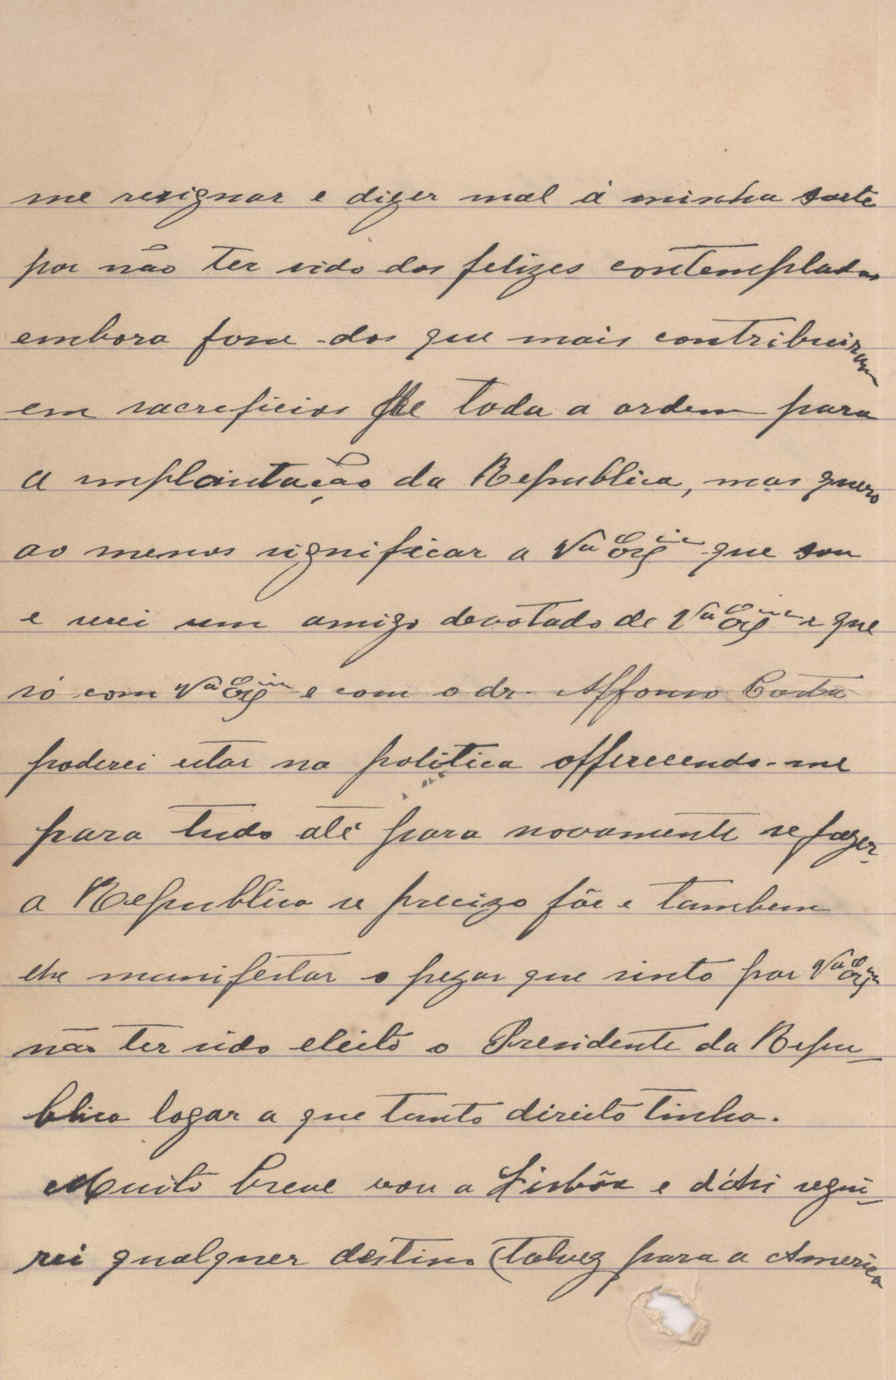 me resignar e dizer mal á minha sorte
por não ter sido dos felizes contemplados
embora fosse dos que mais contribuiram
em sacreficios de toda a ordem para
a implantação da Republica, mas quero
ao menos significar a Vª Exᶜⁱᵃ que sou
e serei um amigo devotado de Vª Exᶜⁱᵃ e que
só com Vª Exᶜⁱᵃ e com o dr. Affonso Costa
poderei estar na politica offerecendo-me
para tudo até para novamente se fazer
a Republica se precizo fôr e tambem
lhe manifestar o pezar que sinto por Vª Exᶜⁱᵃ
não ter sido eleito o Presidente da Repu-
blica logar a que tanto direito tinha.
Muito breve vou a Lisbôa e d'ahi segui-
rei qualquer destino (talvez para a America